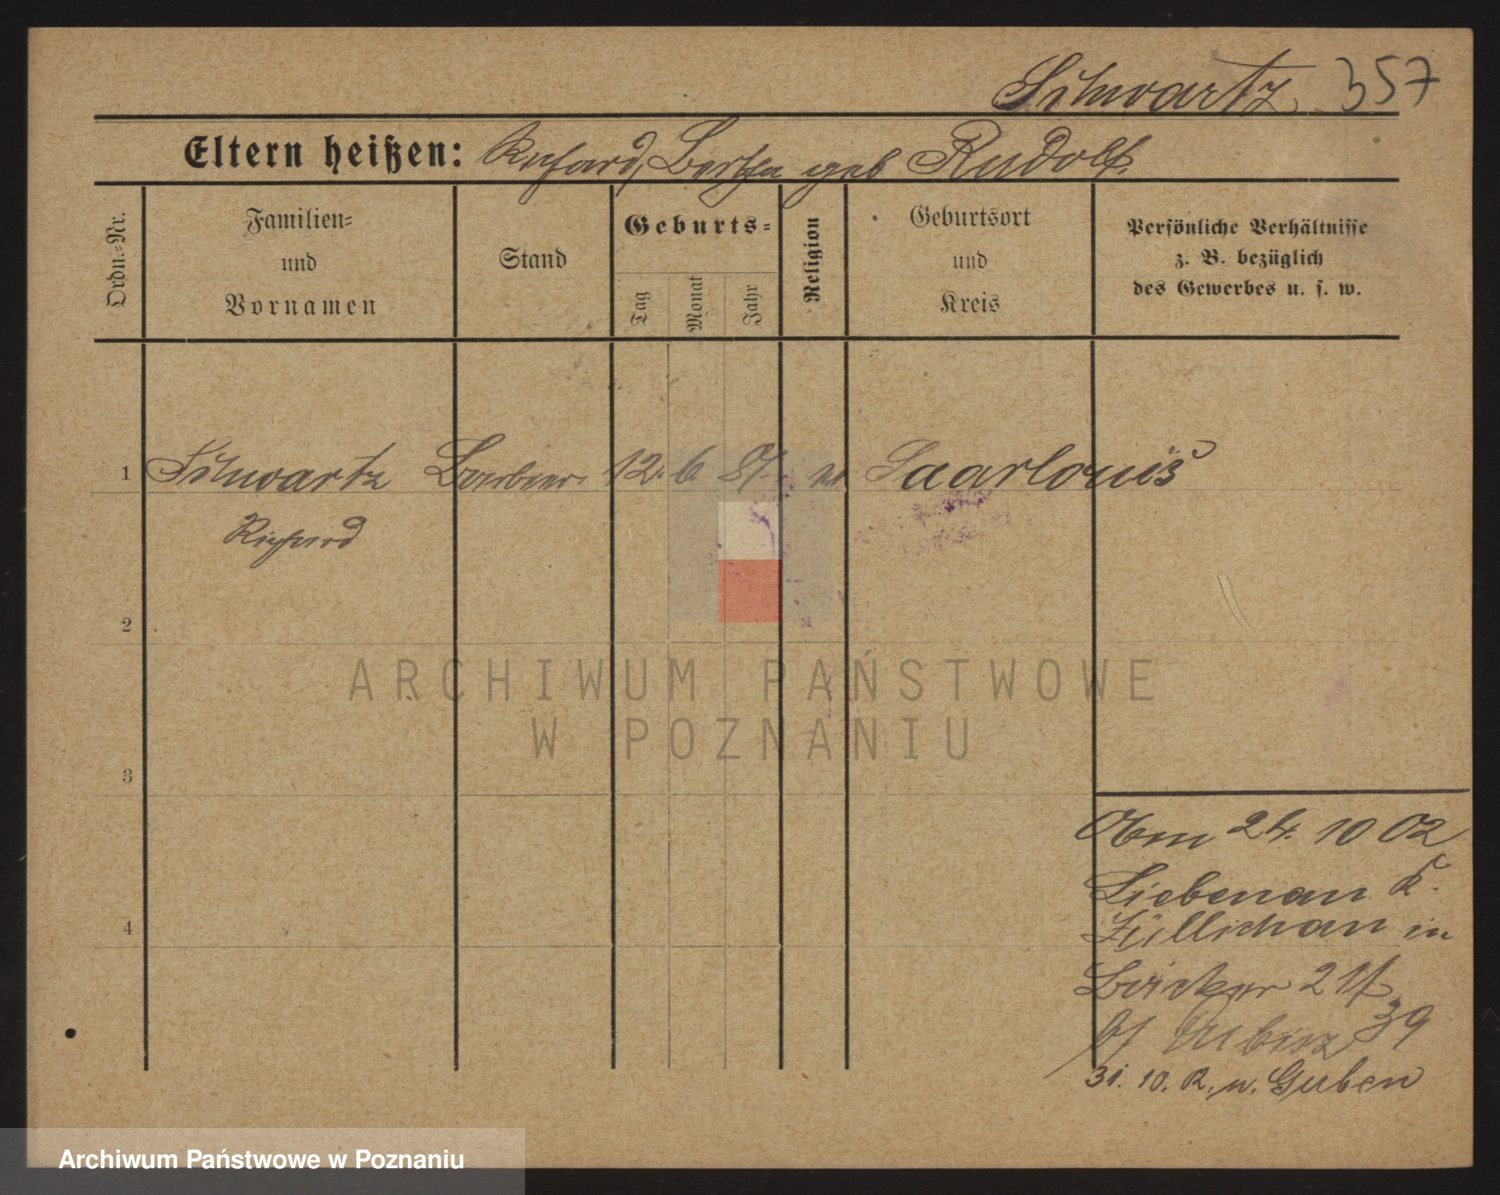 Schwartz 357
Eltern heißen: Richard, Bertha geb Rudolf.
Ordn.-Nr.
Familien-
und
Vornamen
Stand
Geburts-
Tag
Monat
Jahr
Religion
Geburtsort
und
Kreis
Persönliche Verhältnisse
z. B. bezüglich
des Gewerbes u. s. w.
1 Schwartz Barbier 12. 6 81. Saarlouis
Richard
2
3
4
24. 10 02
Liebenau K.
Züllichau in
Bäcker 21
39
31. 10. R. n. Guben
ARCHIWUM PAŃSTWOWE
W POZNANIU
Archiwum Państwowe w Poznaniu